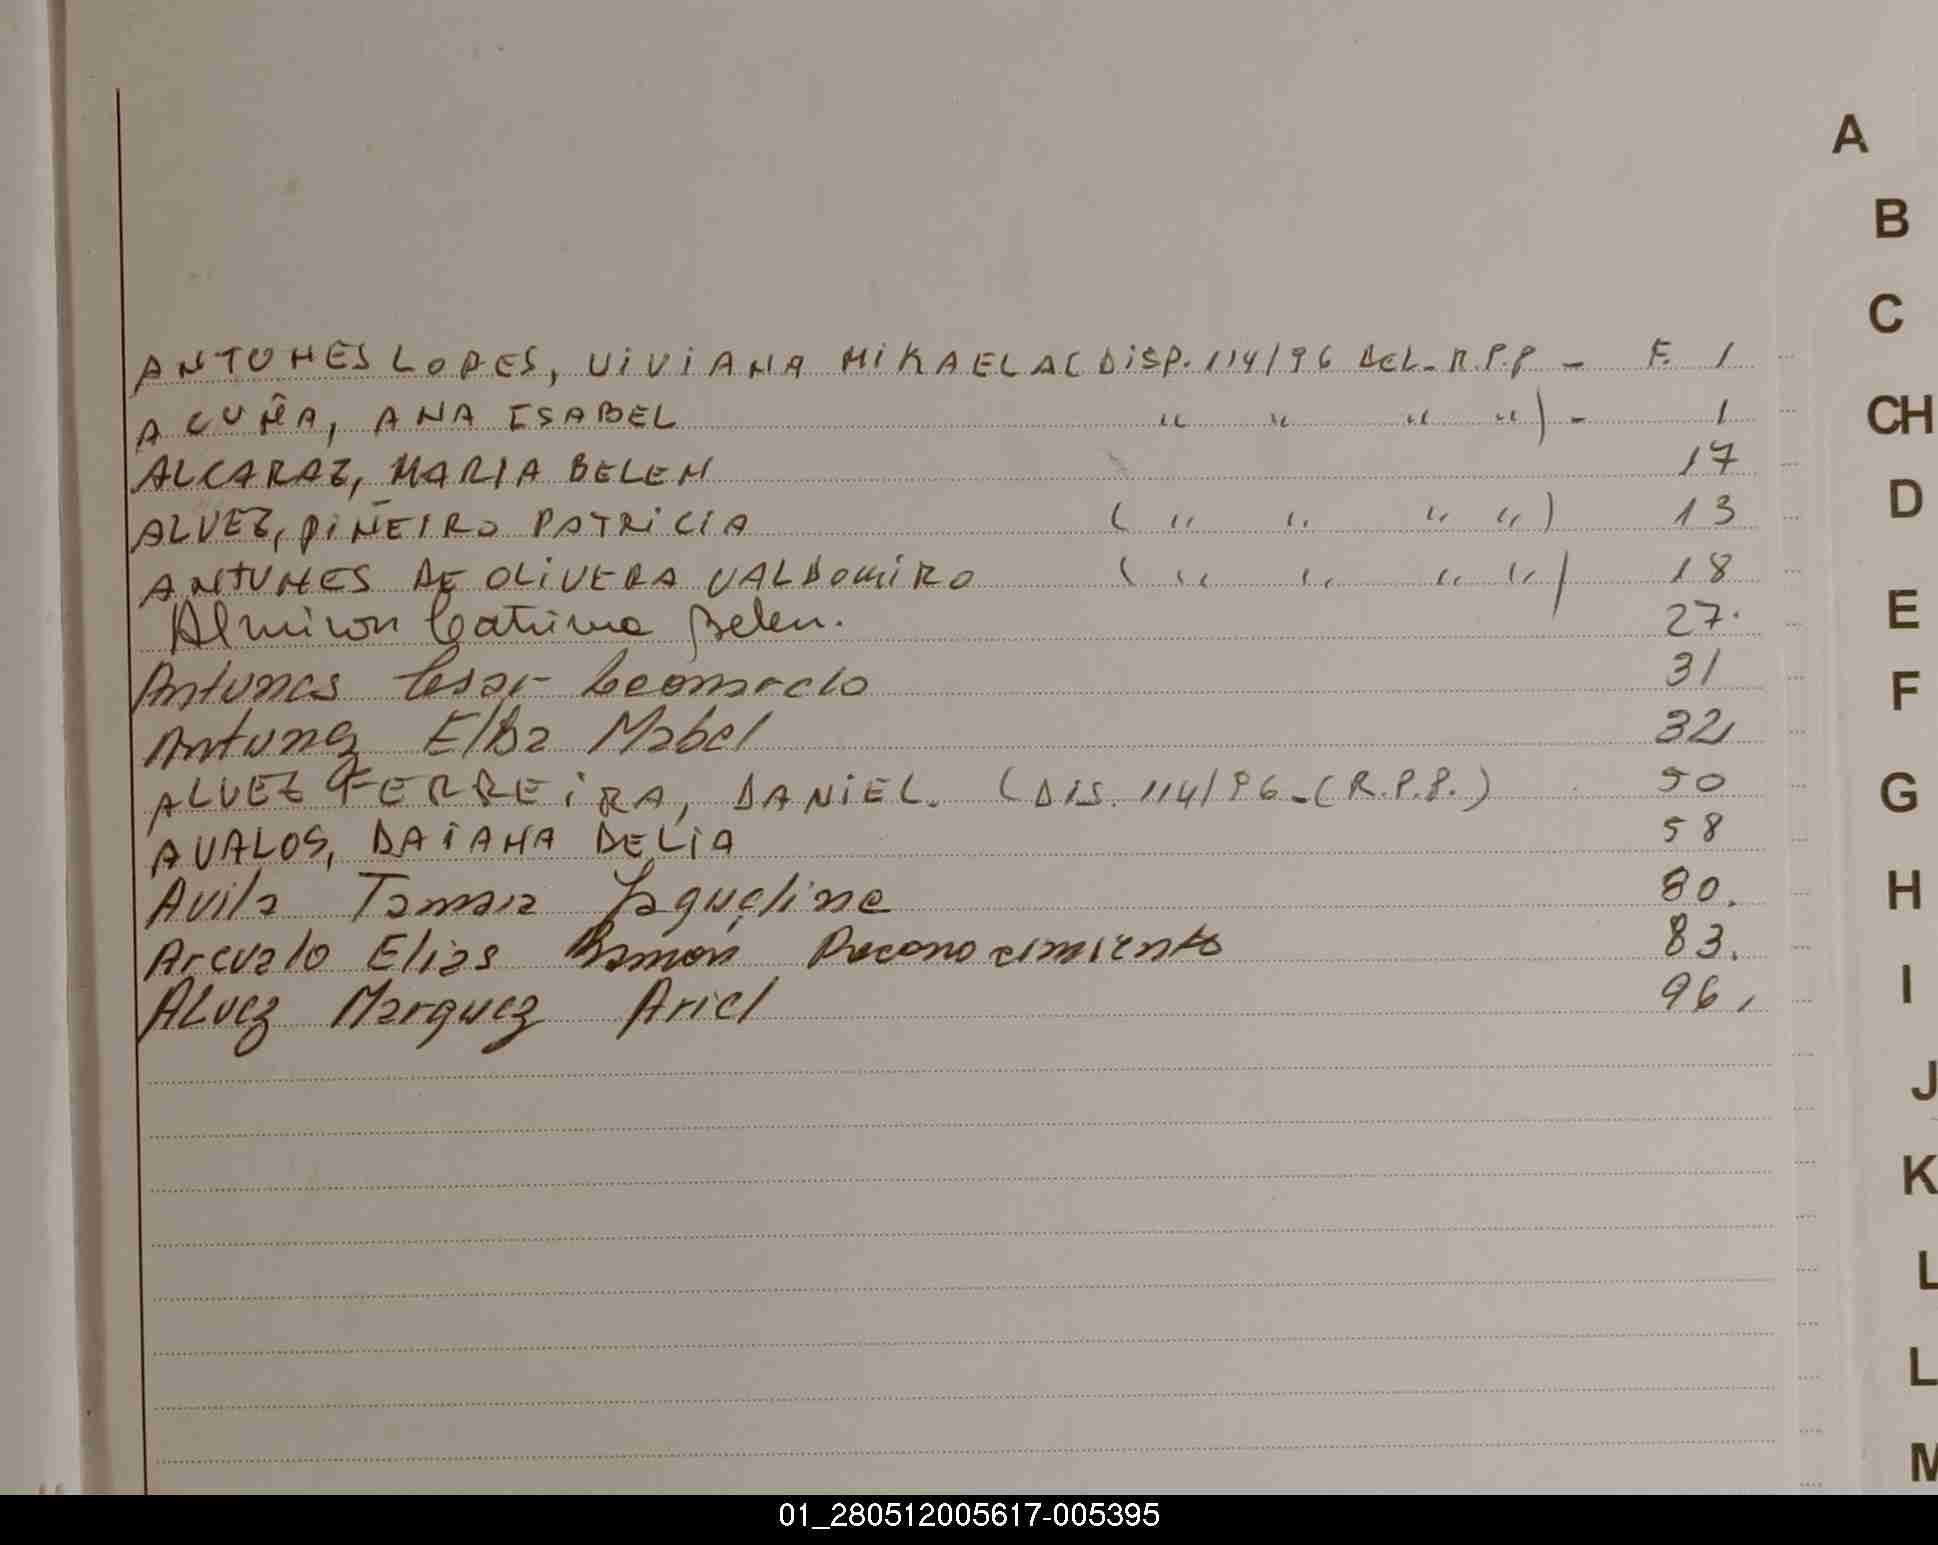 ANTUNES LOPES, VIVIANA MIKAELA ( DISP. 114/96 DEL. R.P.P - F. 1
ACUÑA, ANA ISABEL " " " " ) - 1
ALCARAZ, MARIA BELEN 17
ALVEZ, PIÑEIRO PATRICIA ( " " " " ) 13
ANTUNES DE OLIVERA VALDOMIRO ( " " " " ) 18
Almiron Catrina Belen. 27.
Antunes Cesar Leonardo 31
Antunez Elba Mabel 32
ALVEZ FERREIRA, DANIEL. (DIS. 114/96-(R.P.P.) 50
AVALOS, DAIANA DELIA 58
Avila Tamara Jaqueline 80.
Arevalo Elias Ramón Reconocimiento 83.
ALvez Marquez Ariel 96.
A
B
C
CH
D
E
F
G
H
I
J
K
L
L
M
01_280512005617-005395